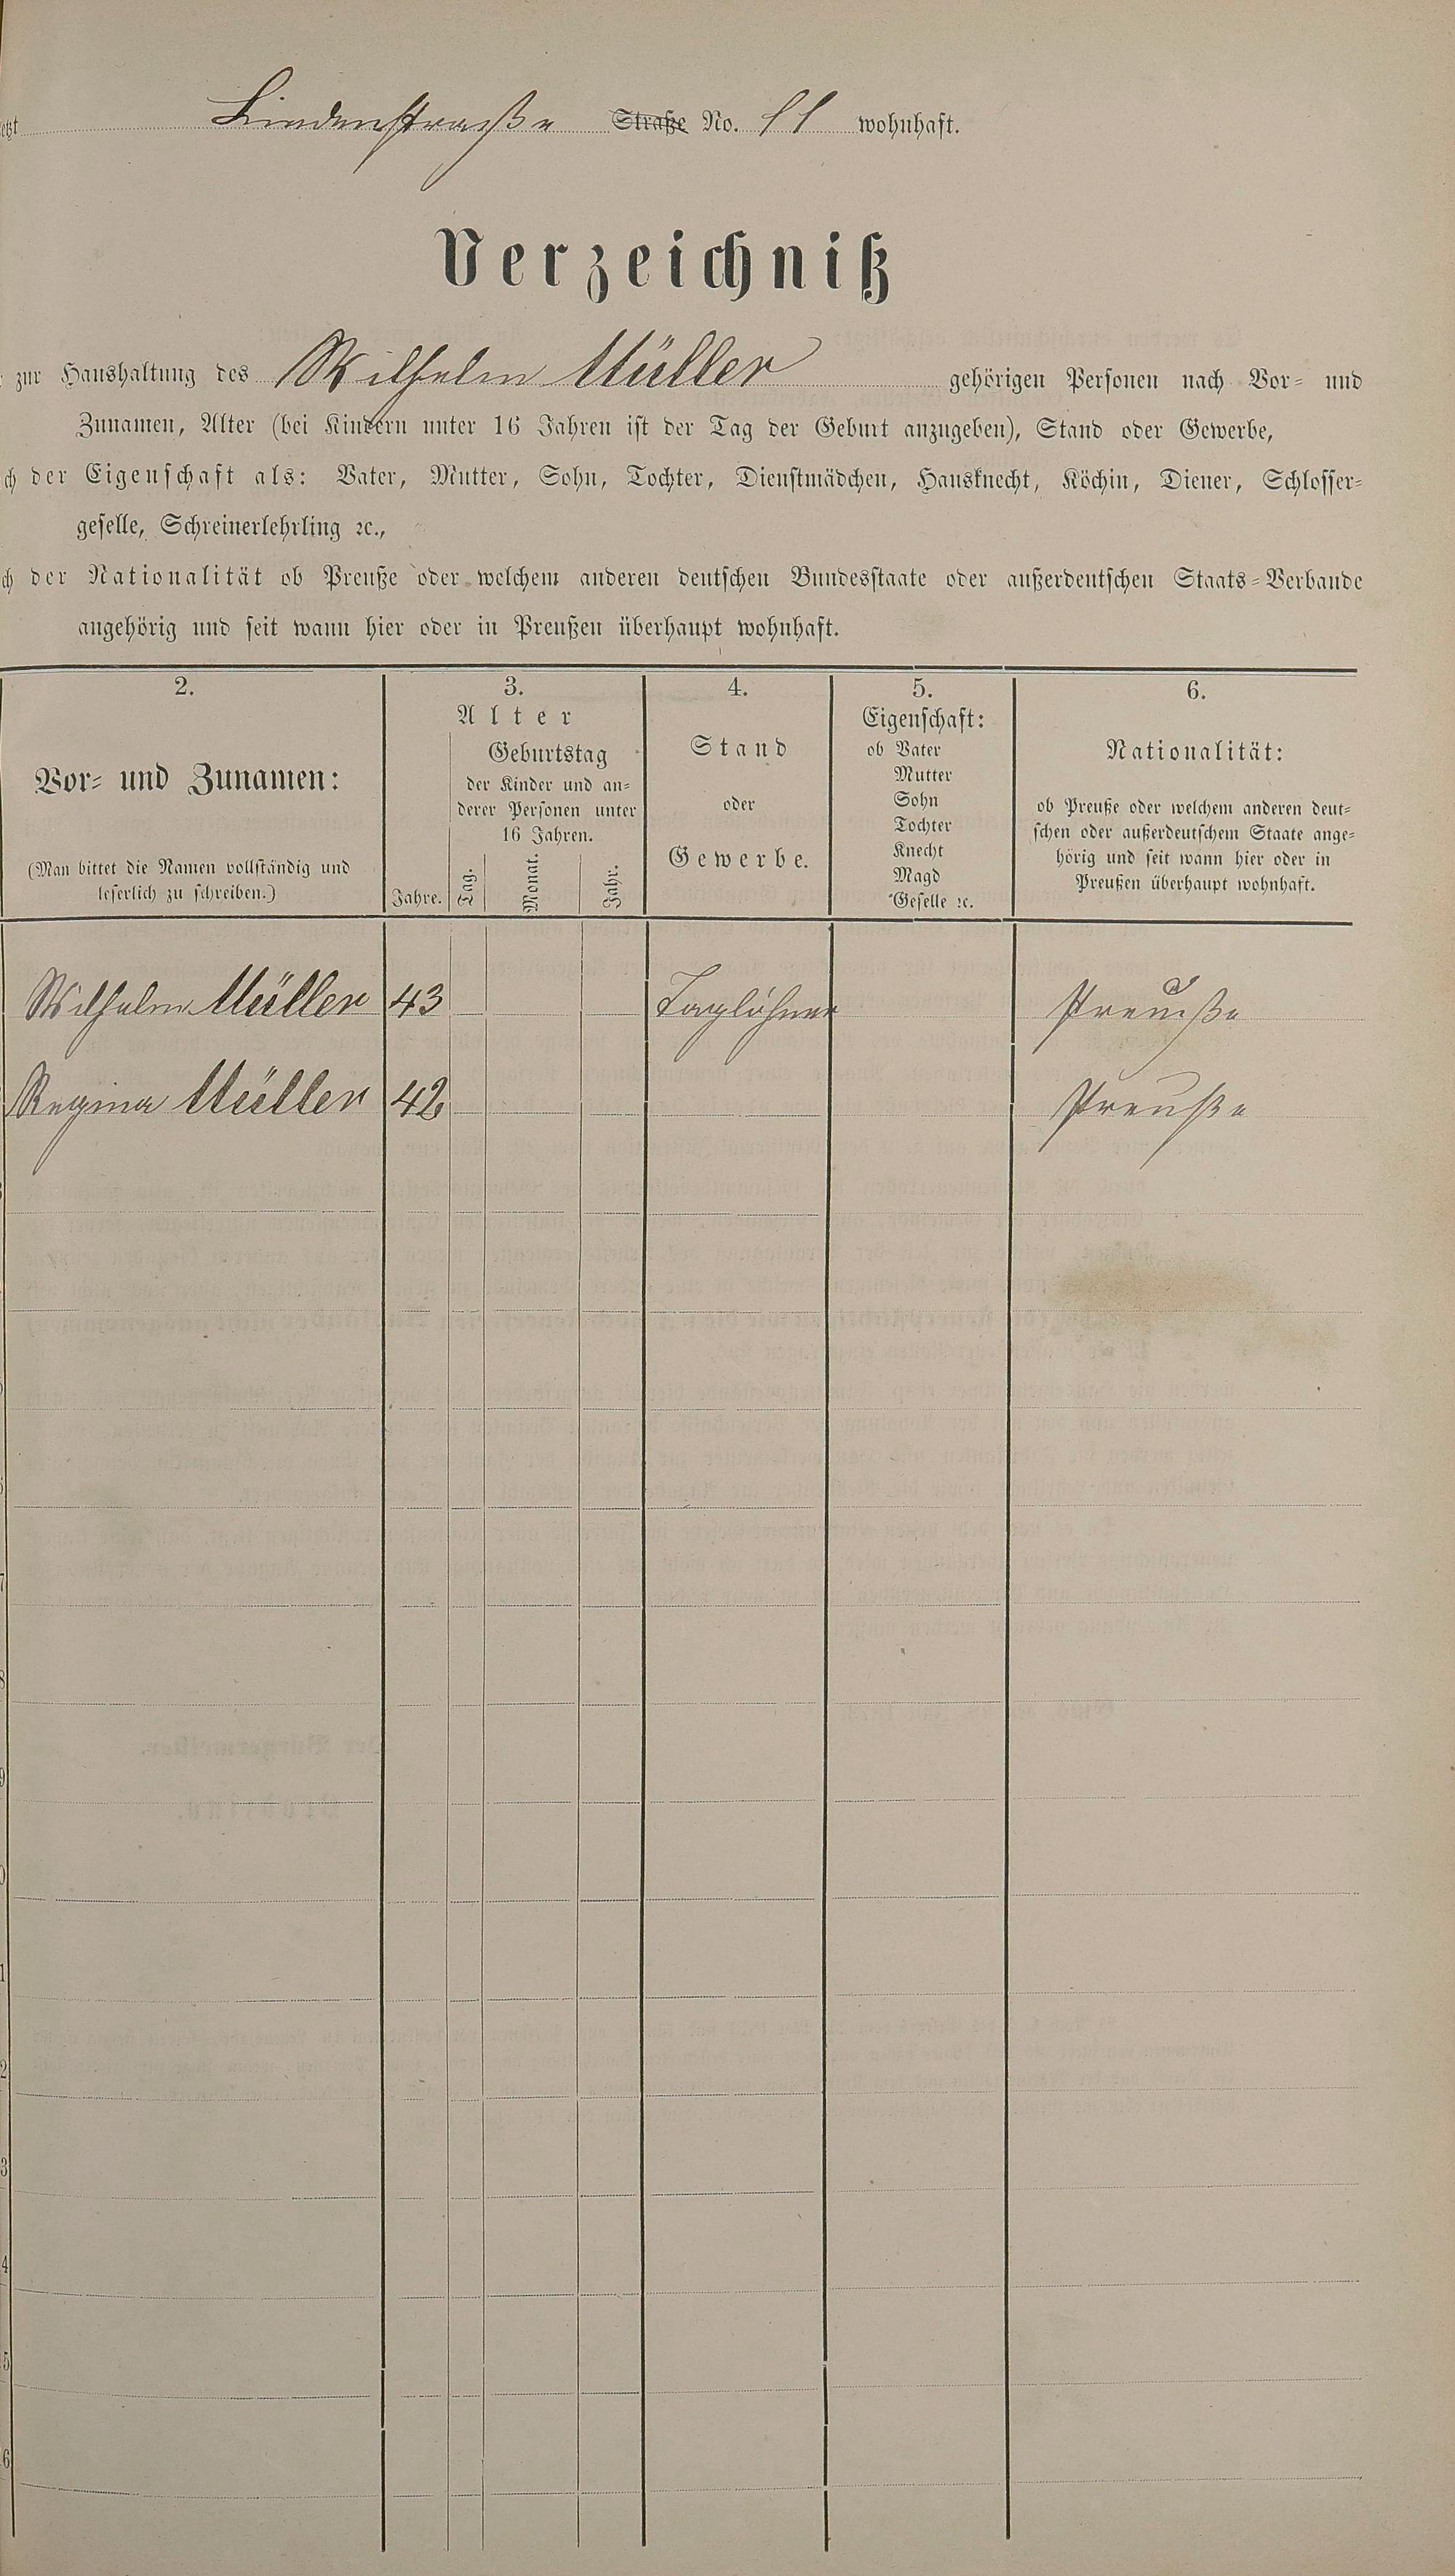 Lindenstraße Straße No. 11 wohnhaft.
Verzeichniß
zur Haushaltung des Wilhelm Müller gehörigen Personen nach Vor- und
Zunamen, Alter (bei Kindern unter 16 Jahren ist der Tag der Geburt anzugeben), Stand oder Gewerbe,
der Eigenschaft als: Vater, Mutter, Sohn, Tochter, Dienstmädchen, Hausknecht, Köchin, Diener, Schlosser-
geselle, Schreinerlehrling ꝛc.,
der Nationalität ob Preuße oder welchem anderen deutschen Bundesstaate oder außerdeutschen Staats-Verbande
angehörig und seit wann hier oder in Preußen überhaupt wohnhaft.
2.
Vor- und Zunamen:
(Man bittet die Namen vollständig und
leserlich zu schreiben.)
3.
Alter
Geburtstag
der Kinder und an-
derer Personen unter
16 Jahren.
Jahre. Tag. Monat. Jahr.
4.
Stand
oder
Gewerbe.
5.
Eigenschaft:
ob Vater
Mutter
Sohn
Tochter
Knecht
Magd
Geselle ꝛc.
6.
Nationalität:
ob Preuße oder welchem anderen deut-
schen oder außerdeutschem Staate ange-
hörig und seit wann hier oder in
Preußen überhaupt wohnhaft.
Wilhelm Müller 43 Taglöhner Preuße
Regina Müller 42 Preuße